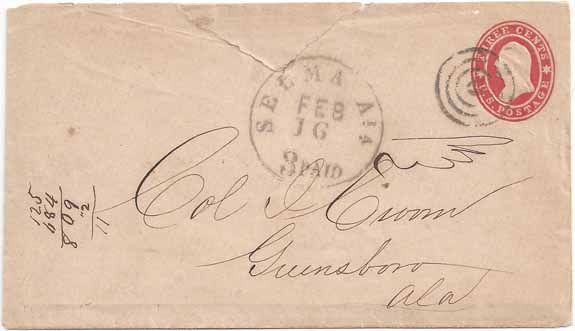 THREE CENTS
U.S. POSTAGE
SELMA Ala
FEB
16
3 PAID
Col I Croom
Greensboro
Ala
125
684
809
"2
11